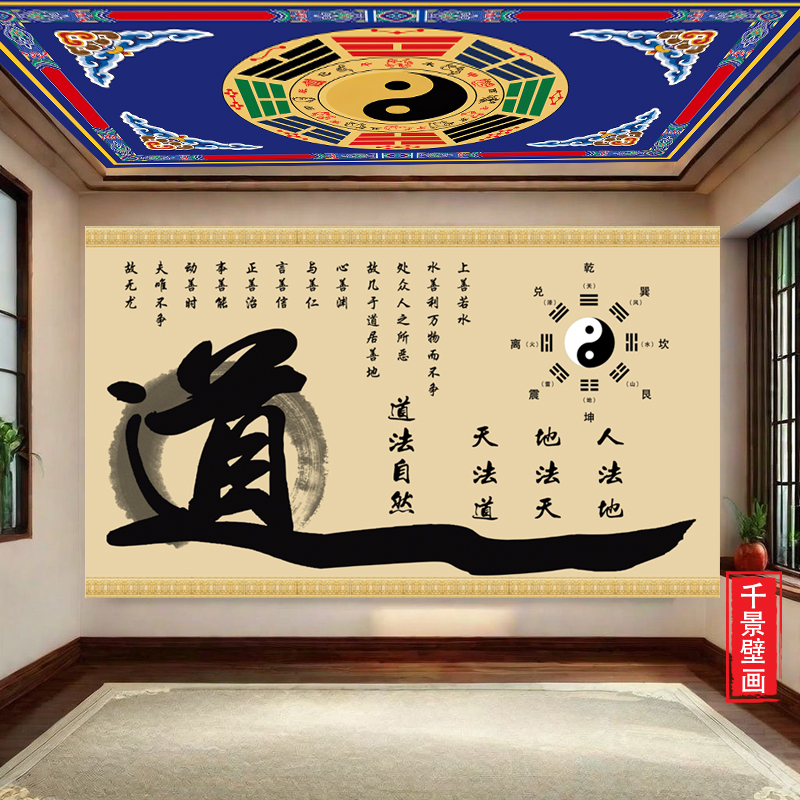 上善若水
水善利万物而不争
处众人之所恶
故几于道居善地
心善渊
与善仁
言善信
正善治
事善能
动善时
夫唯不争
故无尤
人法地
地法天
天法道
道法自然
道
乾
（天）
兑
（泽）
巽
（风）
离
（火）
（水）
坎
震
（雷）
（山）
艮
（地）
坤
千景壁画